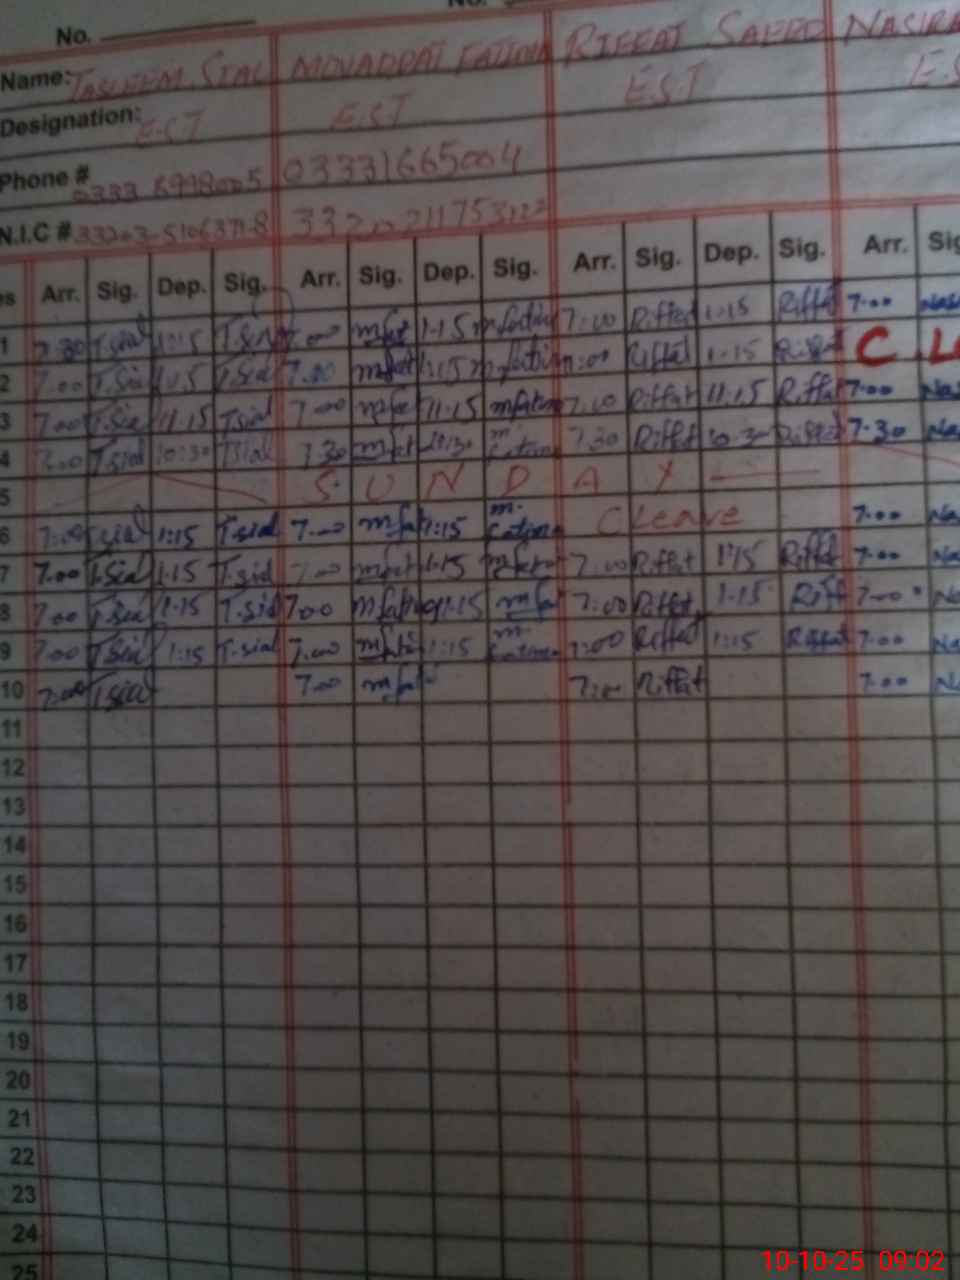 No. No.
Name: TASLEEM. SIAL MOVADDAT FATIMA RIFFAT SAEED NASIRA
Designation: E.S.T E.S.T E.S.T E.S
Phone # 03331665004
N.I.C #
es Arr. Sig. Dep. Sig. Arr. Sig. Dep. Sig. Arr. Sig. Dep. Sig. Arr. Sig
1 7.30 T.sial 1:15 T.sial 7.00 mfat 1.15 mfatima 7:00 Riffat 1:15 Riffat 7.00
2 7.00 T.Sial T.Sial 7.00 mfat 1:15 mfatima 7:00 Riffat 1.15 Riffat C.L
3 7.00 T.Sial 11.15 T.sial 7.00 mfat 11.15 mfatima 7.00 Riffat 11.15 Riffat 7.00
4 T.sial 10:30 T.Sial 7.30 mfat 10:30 m. fatima 7.30 Riffat 10.30 Riffat 7.30
5 S U N D A Y
6 7:00 T.sial 1:15 T.sial 7.00 mfat 1:15 m. fatima C Leave 7.00
7 7.00 T.Sial 1.15 T.sial 7.00 mfat 1.15 7.00 Riffat 1:15 Riffat 7.00
8 7.00 T.Sial 1.15 T.sial 7.00 mfatima 1.15 mfa 7:00 Riffat 1.15 Riff 7.00
9 7.00 T.Sial 1:15 T.sial 7.00 mfati 1:15 m. fatima 7:00 Riffat 1:15 Riffat 7.00
10 7:00 T.sial 7.00 mfati 7:00 Riffat 7.00
11
12
13
14
15
16
17
18
19
20
21
22
23
24
25
10-10-25 09:02